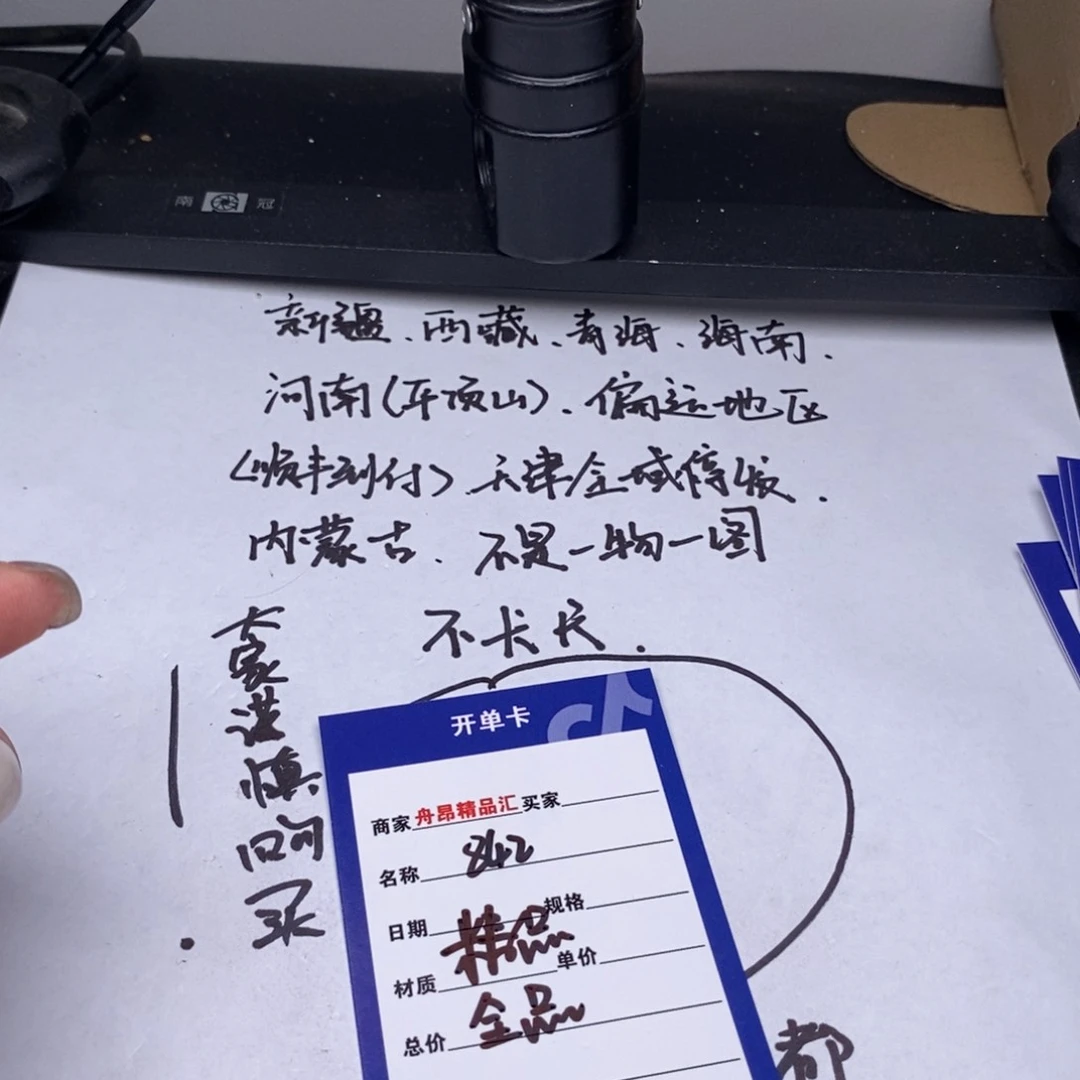 南 冠
新疆、西藏、青海、海南、
河南(平顶山)、偏远地区
(顺丰到付)天津全域停发、
内蒙古、不是一物一图
不卡尺.
大家谨慎询买
开单卡
商家 舟昂精品汇 买家
名称 842
日期 规格
精品
材质 单价
全品
总价
都